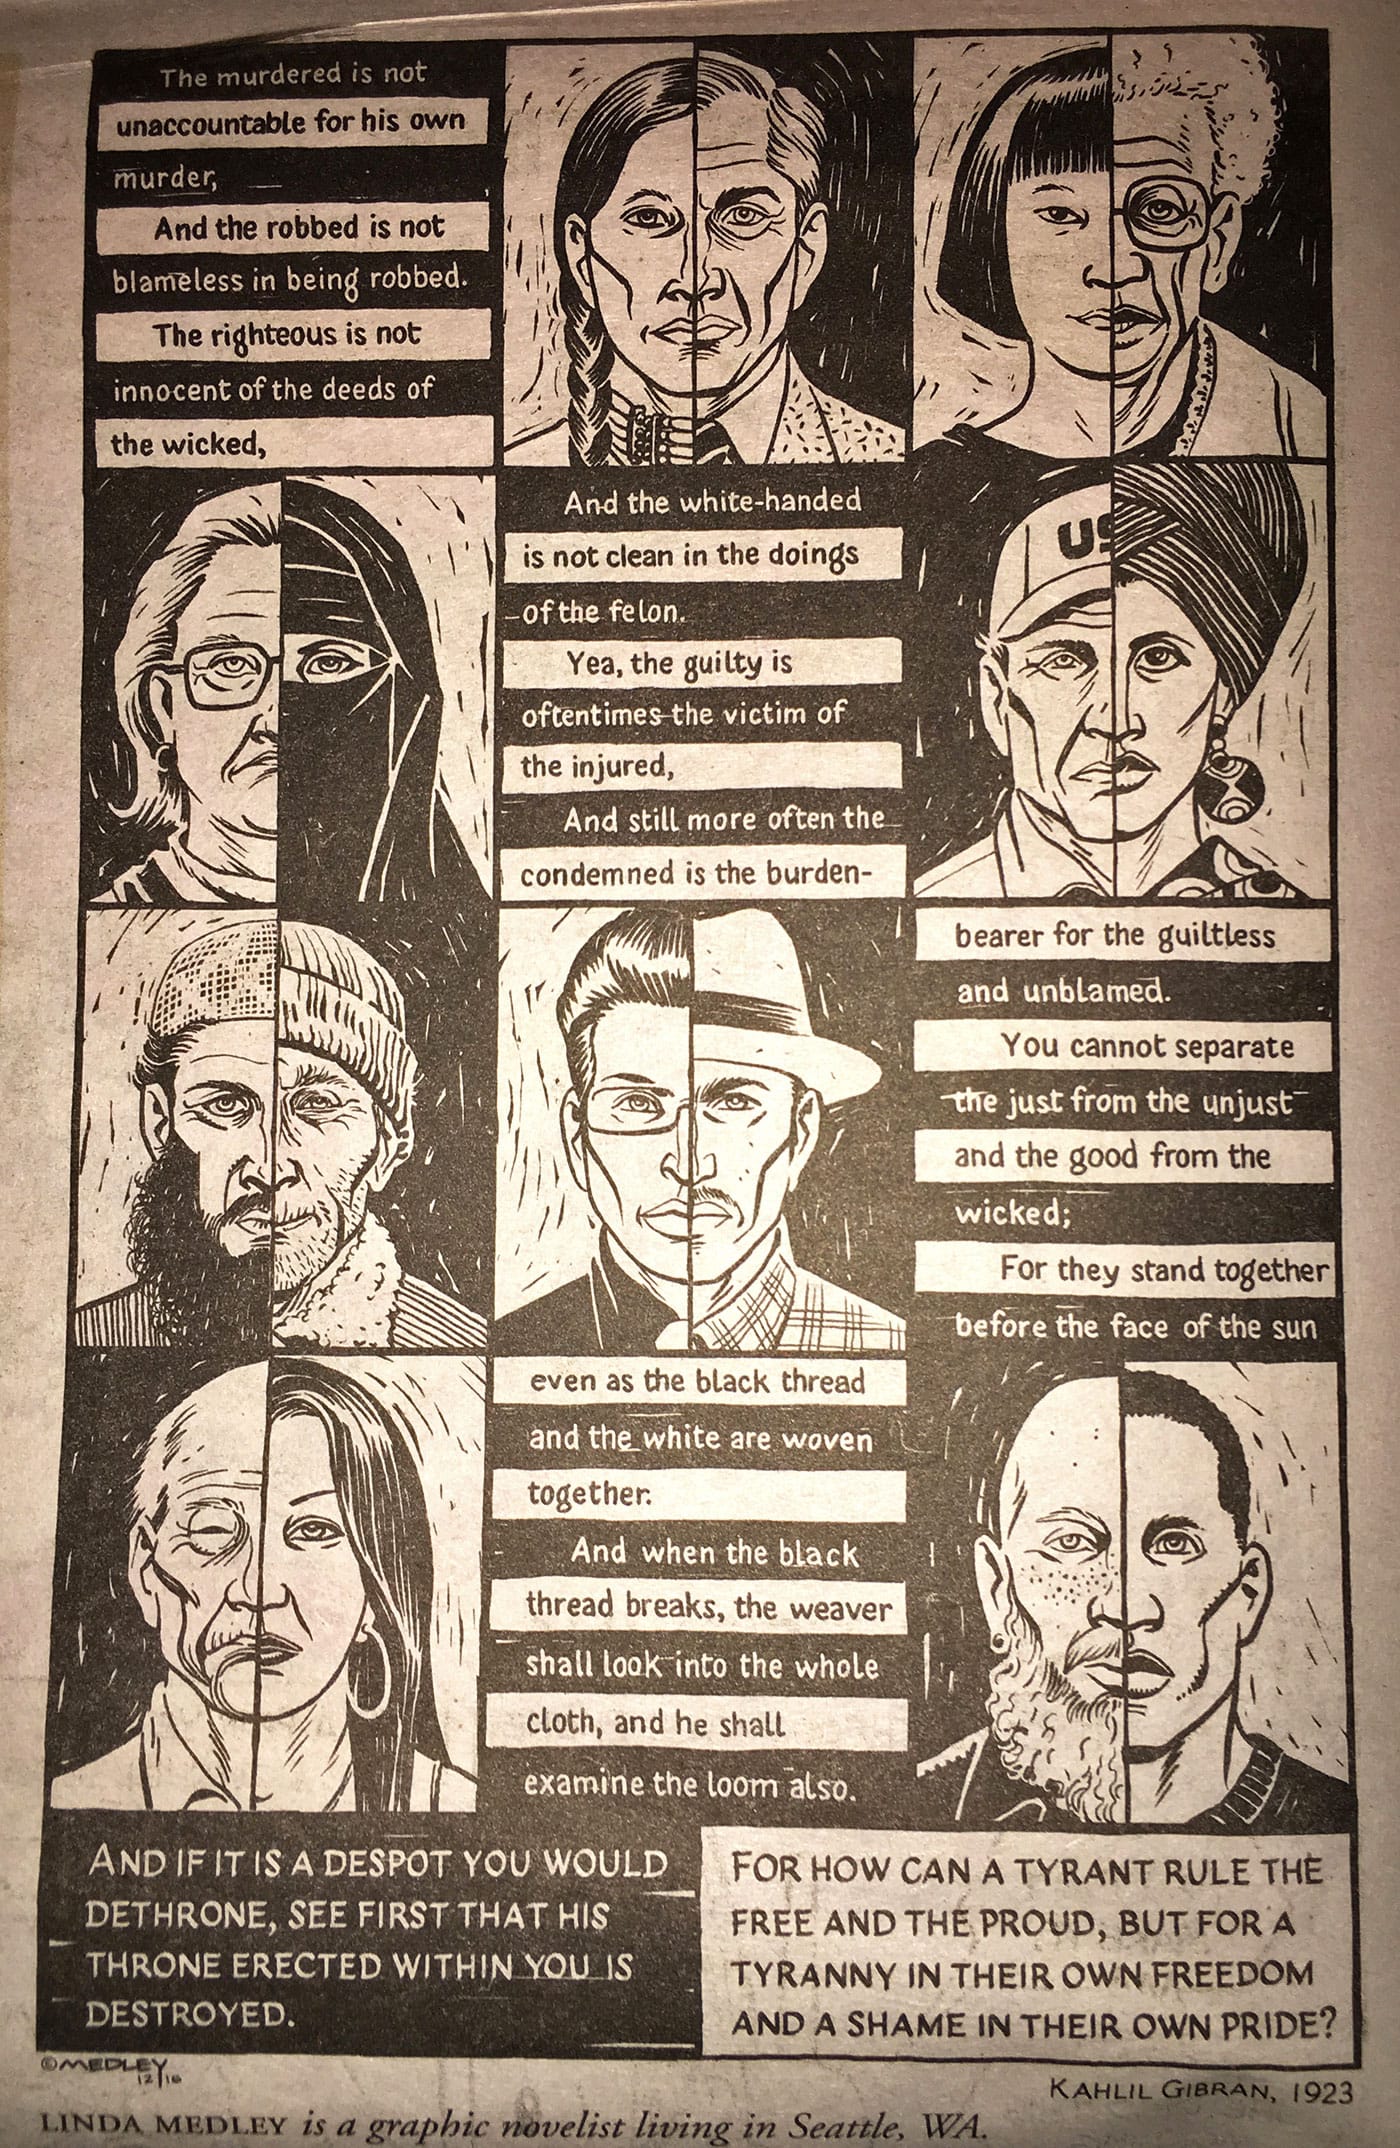 The murdered is not
unaccountable for his own
murder,
And the robbed is not
blameless in being robbed.
The righteous is not
innocent of the deeds of
the wicked,
And the white-handed
is not clean in the doings
of the felon.
Yea, the guilty is
oftentimes the victim of
the injured,
And still more often the
condemned is the burden-
US
bearer for the guiltless
and unblamed.
You cannot separate
the just from the unjust
and the good from the
wicked;
For they stand together
before the face of the sun
even as the black thread
and the white are woven
together.
And when the black
thread breaks, the weaver
shall look into the whole
cloth, and he shall
examine the loom also.
AND IF IT IS A DESPOT YOU WOULD
DETHRONE, SEE FIRST THAT HIS
THRONE ERECTED WITHIN YOU IS
DESTROYED.
FOR HOW CAN A TYRANT RULE THE
FREE AND THE PROUD, BUT FOR A
TYRANNY IN THEIR OWN FREEDOM
AND A SHAME IN THEIR OWN PRIDE?
©MEDLEY
12/16
KAHLIL GIBRAN, 1923
LINDA MEDLEY is a graphic novelist living in Seattle, WA.